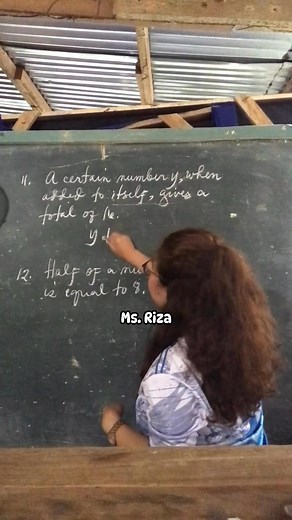 11. A certain number y, when
added to itself, gives a
total of 16.
y
12. Half of a nu
is equal to 8.
Ms. Riza